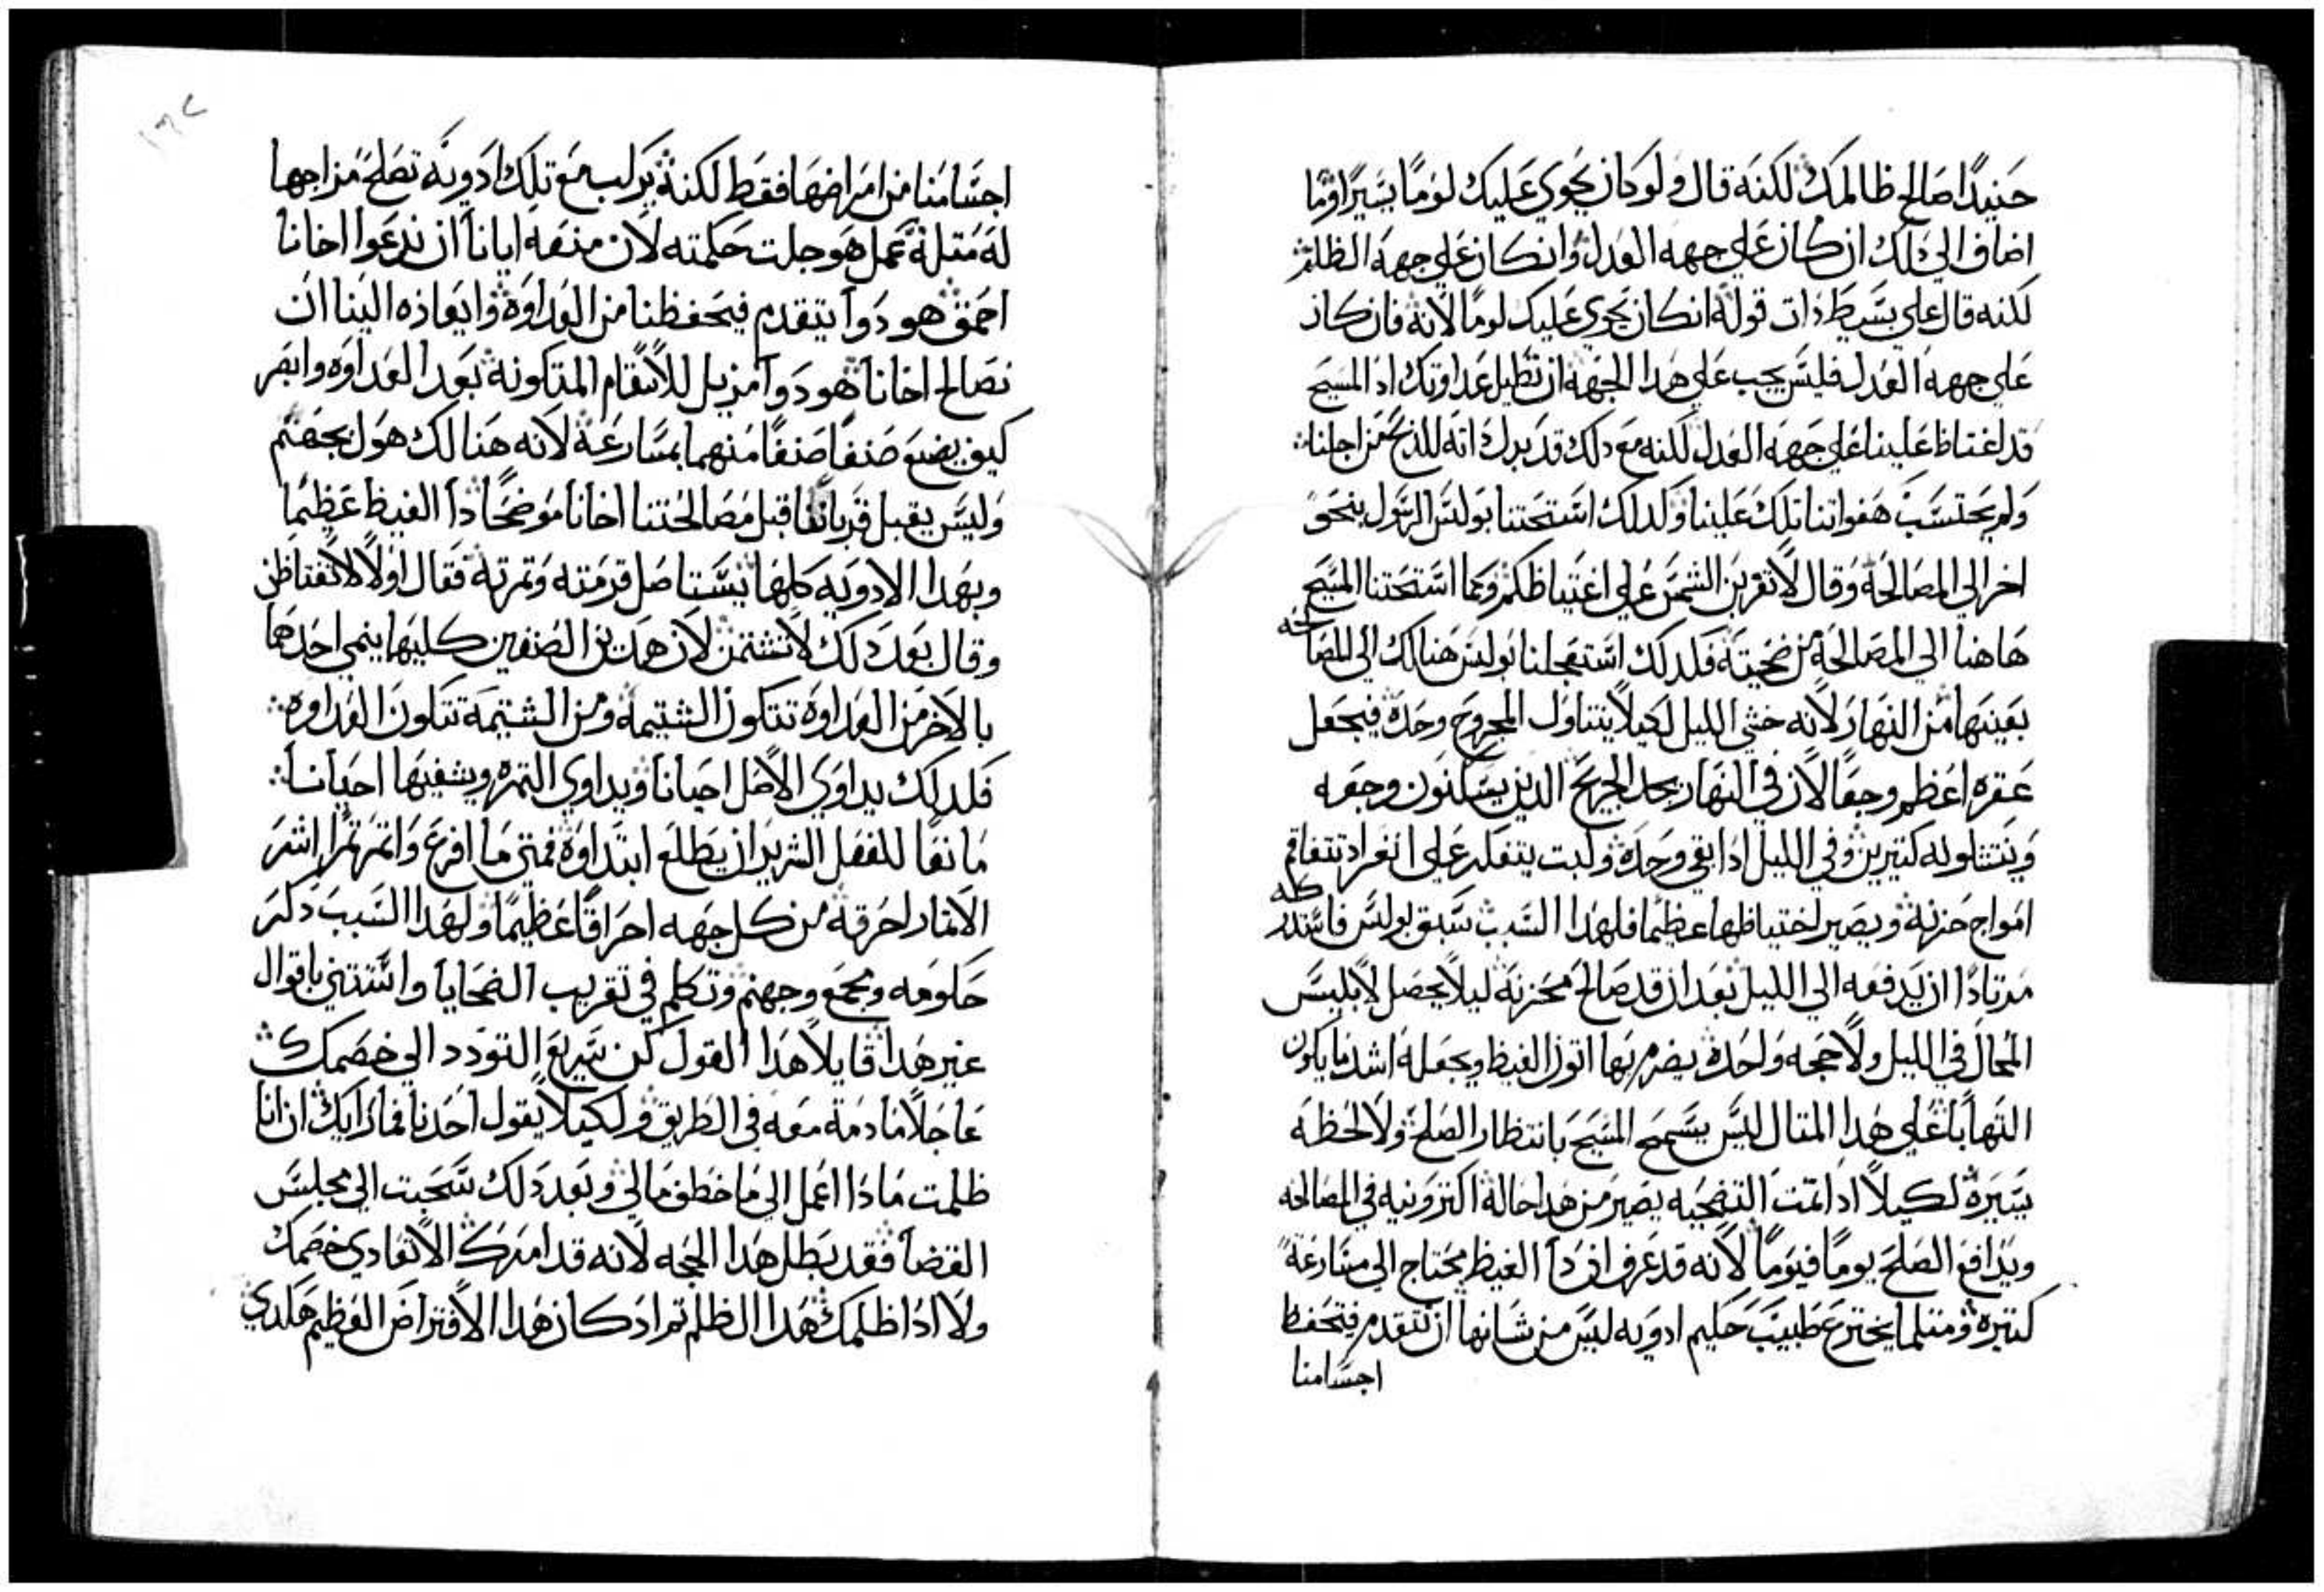 حنيدًا صالح ظالمك لكنه قال ولو كان يحوي عليك لومًا يسيرًا وما
اضاف الي دلك ان كان علي جهه العدل وان كان علي جهه الظلم
لكنه قال علي بسيط دات قوله ان كان يحوي عليك لومًا لانه فان كان
علي جهه العدل فليس يجب علي هدا الجهه ان تطيل عداوتك اد المسيح
قد اغتاظ علينا علي جهه العدل لكنه مع دلك قد بدل داته للدبح من اجلنا
ولم يحتسب هفواتنا تلك علينا ولدلك استحتنا بولس الرسول بنحو
اخر الي المصالحه وقال لا تغربن الشمس علي اغتياظكم وكما استحتنا المسيح
هاهنا الي المصالحه من ضحيته فلدلك استعجلنا بولس هنالك الي المصالحه
بعينها من النهار لانه خشي الليل لكيلا يتناول المجروح وحده فيجعل
عقره اعظم وجعًا لان في النهار يحد الجريح الدين يسكنون وجعه
ويتتناوله كتيرين وفي الليل ادا بقي وحده ولبت يتفكر علي انفراد تتفاقم
امواج حزنه ويصير اختياظها عظيمًا فلهدا السبب سبق بولس فاستدركه
مرتادًا ان يدفعه الي الليل بعد ان قد صالح محزنه ليلا يحصل لابليس
المحال في الليل ولا حجه واحده يضرم بها اتون الغيظ ويجعله اشد ما يكون
التهابًا علي هدا المتال ليس يسمح المسيح بانتظار الصلح ولا لحظه
يسيره لكيلا ادا تمت التضحيه يصير من هدا حاله اكتر ونيه في المصالحه
ويدافع الصلح يومًا فيومًا لانه قد عرف ان دا الغيظ يحتاج الي مسارعة
كتيره ومتلما يخترع طبيب حكيم ادويه ليس من شانها ان تتقدم فتحفظ
اجسامنا
اجسامنا من امراضها فقط لكنه يركب مع تلك ادويه تصلح مزاجها
له متله عمل هو جلت حكمته لان منعه ايانا ان ندعوا اخانا
احمق هو دوا يتقدم فيحفظنا من العداوه وايعازه الينا ان
نصالح اخانا هو دوا مزيل للاسقام المتكونه بعد العداوه وابصر
كيف يضع صنفًا صنفًا منهما بمسارعه لانه هنالك هول بجهنم
وليس يقبل قربانًا قبل مصالحتنا اخانا موضحًا دا الغيظ عظيمًا
وبهدا الادويه كلها يستاصل قرمته وتمرته فقال اولا لا تغتاظن
وقال بعد دلك لا تشتمن لان هدين الصنفين كليهما ينمي احدهما
بالاخر من العداوه تتكون الشتيمه ومن الشتيمه تتكون العداوه
فلدلك يداوي الاصل احيانا ويداوي التمره ويشفيها احيانا
مانعًا للفعل الشرير ان يطلع ابتداوه فمتي ما افرع واتمر تمرًا اشر
الاتمار احرقه من كل جهه احراقًا عظيمًا ولهدا السبب دكر
حكومه ومجمع وجهنم وتكلم في تقريب الضحايا واستتني باقوال
غير هدا قايلا هدا القول كن سريع التودد الي خصمك
عاجلا ما دمت معه في الطريق ولكيلا يقول احدنا فما رايك ان انا
ظلمت مادا اعمل الي ما خطف مالي وبعد دلك سحبت الي مجلس
القضا فقد بطل هدا الحجه لانه قد امرك الا تعادي خصمك
ولا ادا ظلمك هدا الظلم تم اد كان هدا الافتراض العظيم هكدي